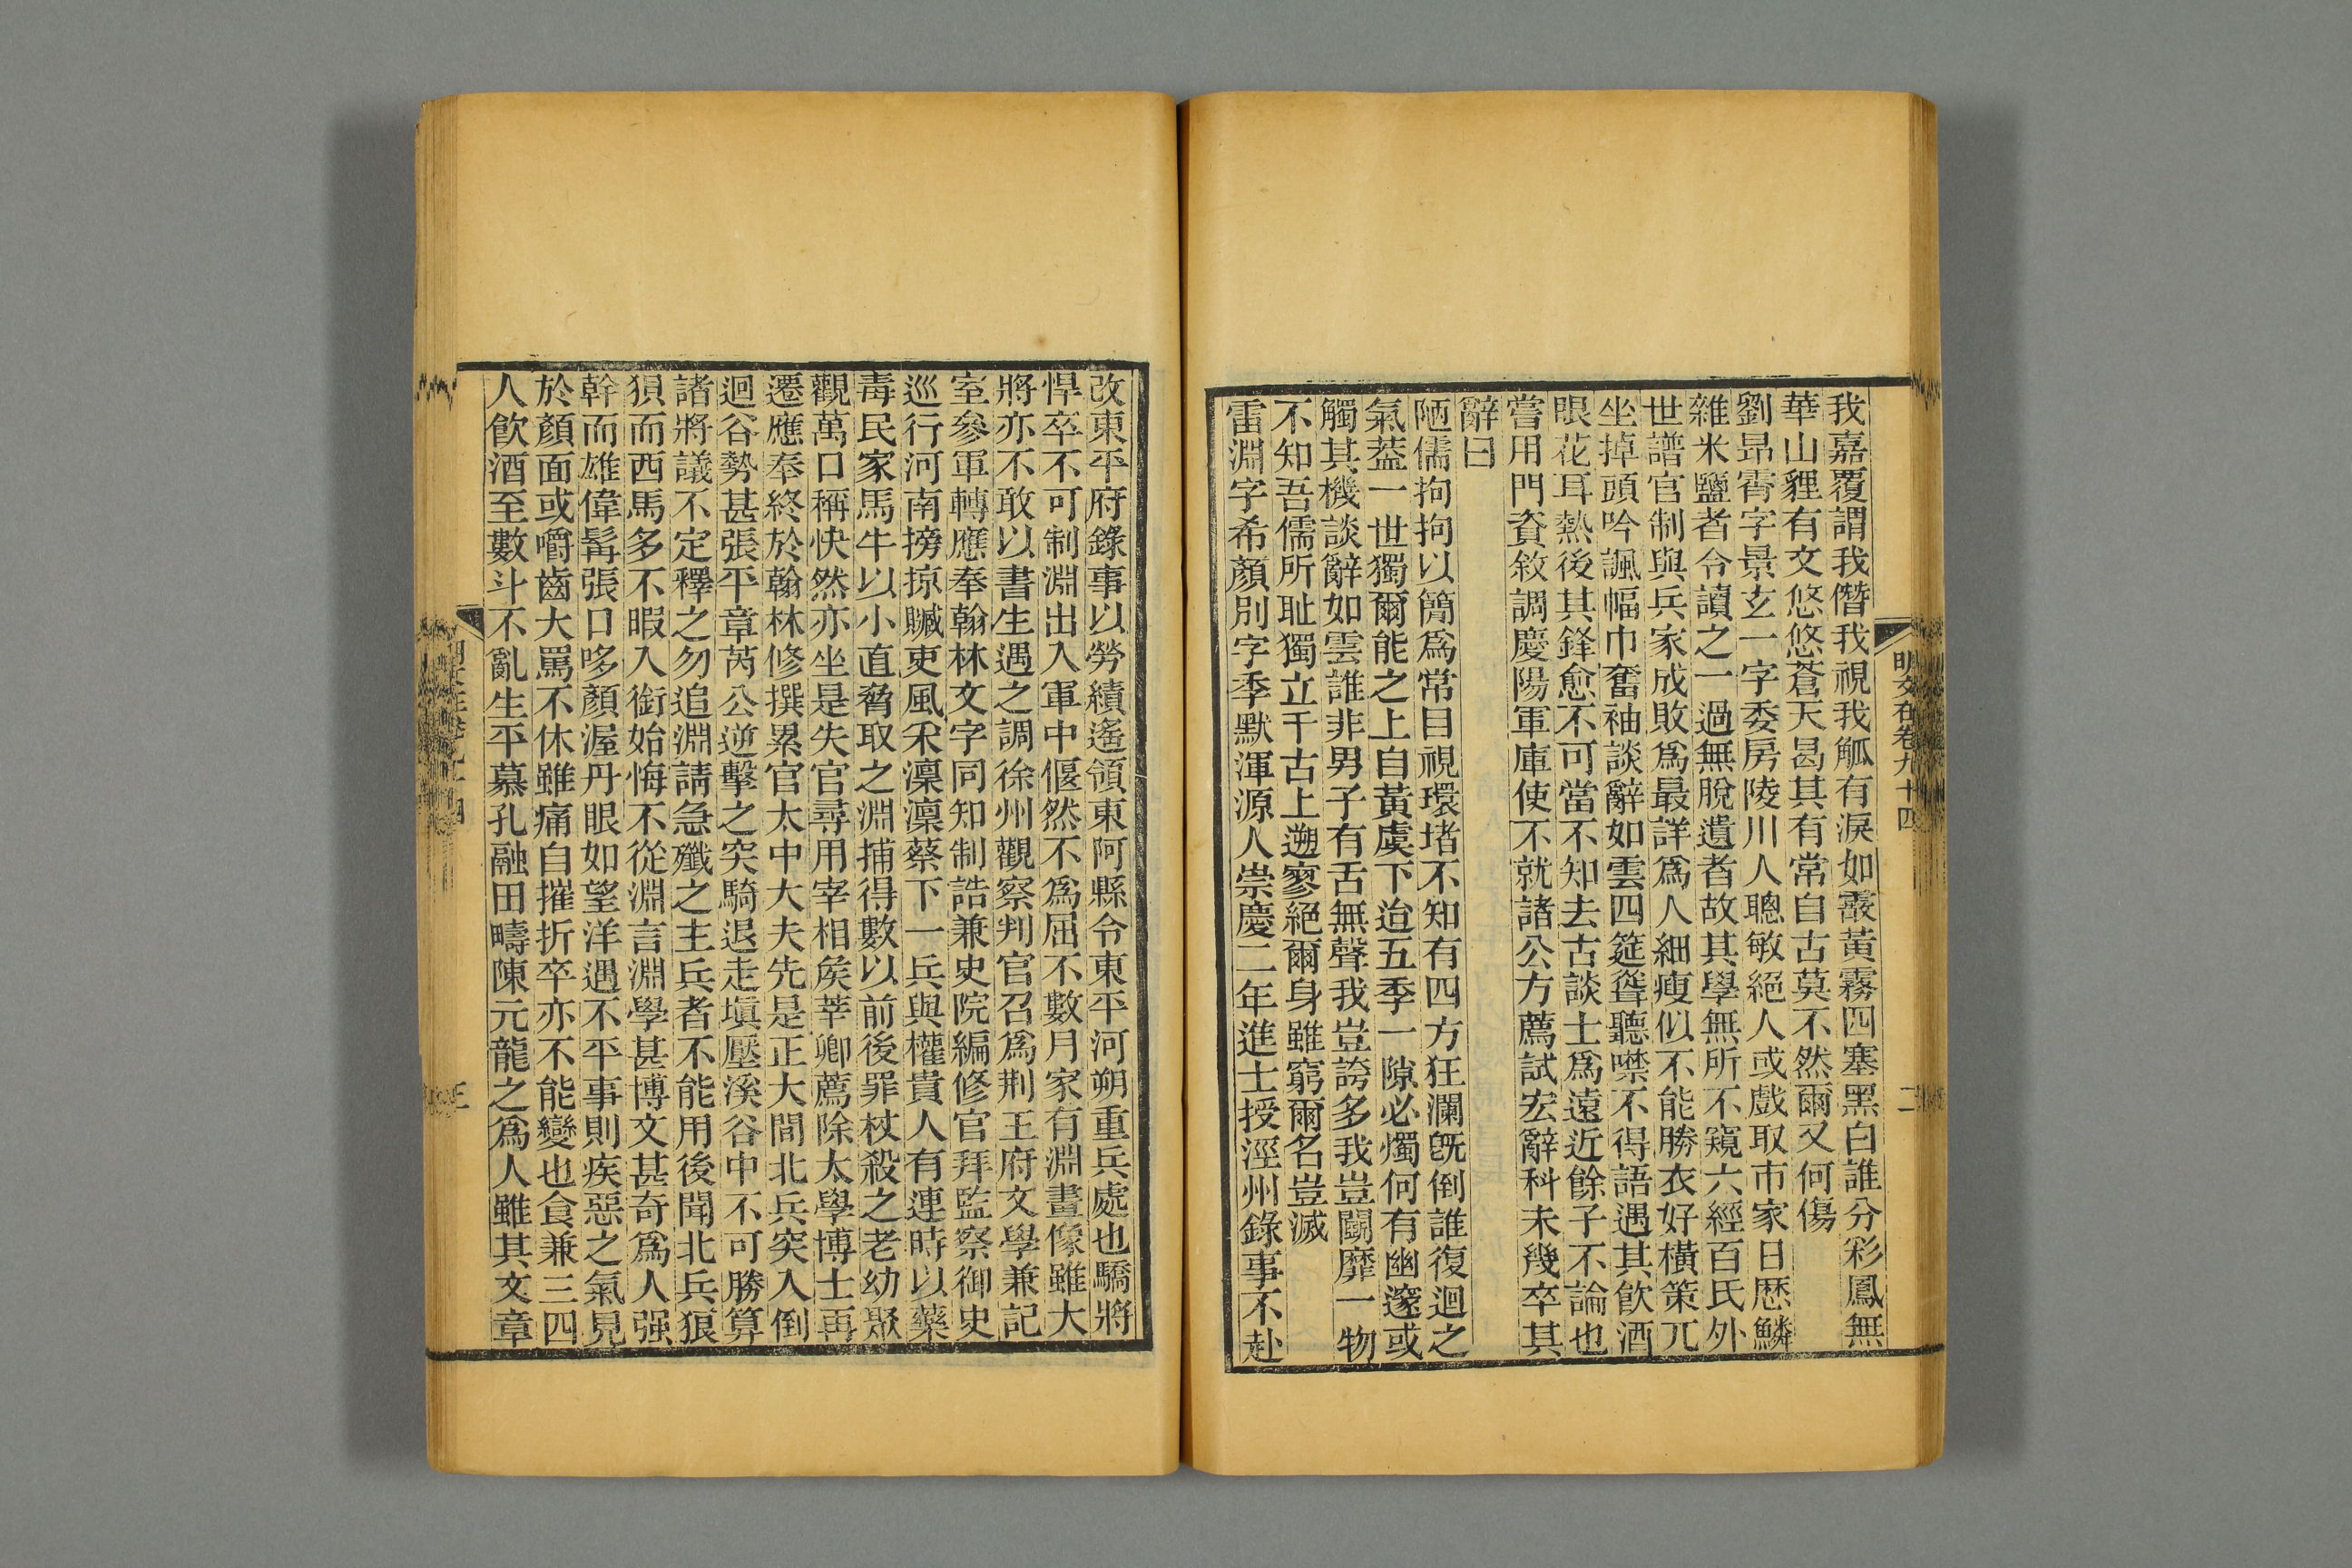 明文在卷九十四
二
我嘉覆謂我僭我視我觚有淚如霰黃霧四塞黑白誰分彩鳳無
華山貍有文悠悠蒼天曷其有常自古莫不然爾又何傷
劉昻霄字景玄一字委房陵川人聰敏絕人或戲取市家日歷鱗
雜米鹽者令讀之一過無脫遺者故其學無所不窺六經百氏外
世譜官制與兵家成敗爲最詳爲人細瘦似不能勝衣好橫策兀
坐掉頭吟諷幅巾奮袖談辭如雲四筵聳聽噤不得語遇其飮酒
眼花耳熱後其鋒愈不可當不知去古談士爲遠近餘子不論也
嘗用門資敘調慶陽軍庫使不就諸公方薦試宏辭科未幾卒其
辭曰
陋儒拘拘以簡爲常目視環堵不知有四方狂瀾旣倒誰復迴之
氣葢一世獨爾能之上自黃虞下迨五季一隙必燭何有幽邃或
觸其機談辭如雲誰非男子有舌無聲我豈誇多我豈鬭靡一物
不知吾儒所耻獨立千古上遡寥絕爾身雖窮爾名豈滅
雷淵字希顏別字季默渾源人崇慶二年進士授涇州錄事不赴
改東平府錄事以勞績遙領東阿縣令東平河朔重兵處也驕將
悍卒不可制淵出入軍中偃然不爲屈不數月家有淵畫像雖大
將亦不敢以書生遇之調徐州觀察判官召爲荆王府文學兼記
室參軍轉應奉翰林文字同知制誥兼史院編修官拜監察御史
巡行河南搒掠贓吏風采凜凜蔡下一兵與權貴人有連時以藥
毒民家馬牛以小直脅取之淵捕得數以前後罪杖殺之老幼聚
觀萬口稱快然亦坐是失官尋用宰相矦莘卿薦除太學博士再
遷應奉終於翰林修撰累官太中大夫先是正大間北兵突入倒
迴谷勢甚張平章芮公逆擊之突騎退走塡壓溪谷中不可勝算
諸將議不定釋之勿追淵請急殲之主兵者不能用後聞北兵狼
狽而西馬多不暇入銜始悔不從淵言淵學甚博文甚奇爲人强
幹而雄偉髯張口哆顏渥丹眼如望洋遇不平事則疾惡之氣見
於顏面或嚼齒大罵不休雖痛自摧折卒亦不能變也食兼三四
人飮酒至數斗不亂生平慕孔融田疇陳元龍之爲人雖其文章
三